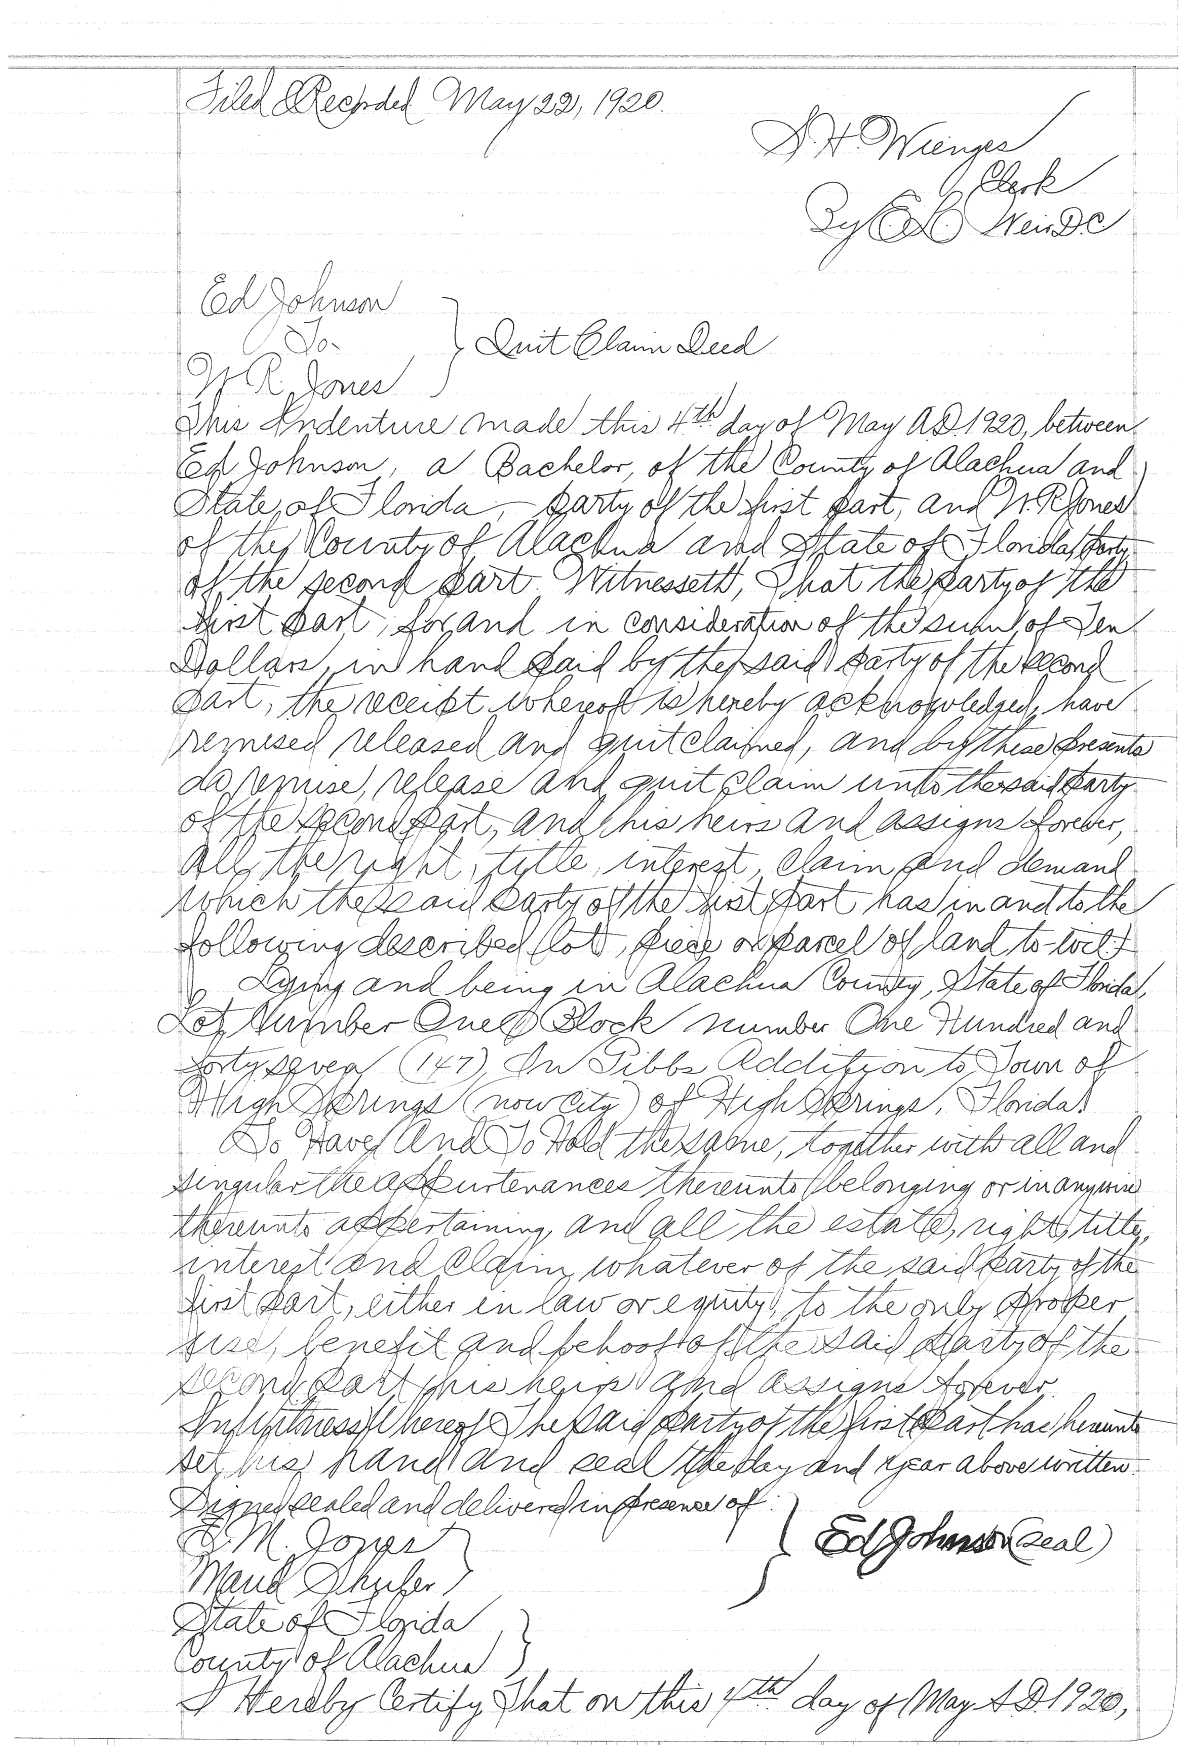 Filed & Recorded May 22, 1920.
S. H. Wienges
Clerk
By Weir D.C
Ed Johnson
To
W. R. Jones
Quit Claim Deed
This Indenture made this 4th day of May A.D. 1920, between
Ed Johnson, a Bachelor, of the County of Alachua and
State of Florida, party of the first part, and W. R. Jones
of the County of Alachua and State of Florida party
of the second part. Witnesseth, That the party of the
first part, for and in consideration of the sum of Ten
Dollars, in hand paid by the said party of the second
part, the receipt whereof is hereby acknowledged, have
remised released and quitclaimed, and by these presents
do remise, release and quit claim unto the said party
of the second part, and his heirs and assigns forever,
all the right, title, interest, claim and demand
which the said party of the first part has in and to the
following described lot, piece or parcel of land to-wit:
Lying and being in Alachua County, State of Florida,
Lot Number One Block number One Hundred and
forty seven (147) In Gibbs Addition to Town of
High Springs (now city) of High Springs, Florida.
To Have And To Hold the same, together with all and
singular the appurtenances thereunto belonging or in anywise
thereunto appertaining, and all the estate, right, title,
interest and claim whatever of the said party of the
first part, either in law or equity, to the only proper
use, benefit and behoof of the said party of the
second part his heirs and assigns forever.
In Witness Whereof The said party of the first part has hereunto
set his hand and seal the day and year above written.
Signed sealed and delivered in presence of:
M. Jones
Maud Shufer
Ed Johnson (seal)
State of Florida
County of Alachua
I Hereby Certify That on this 4th day of May A.D. 1920,